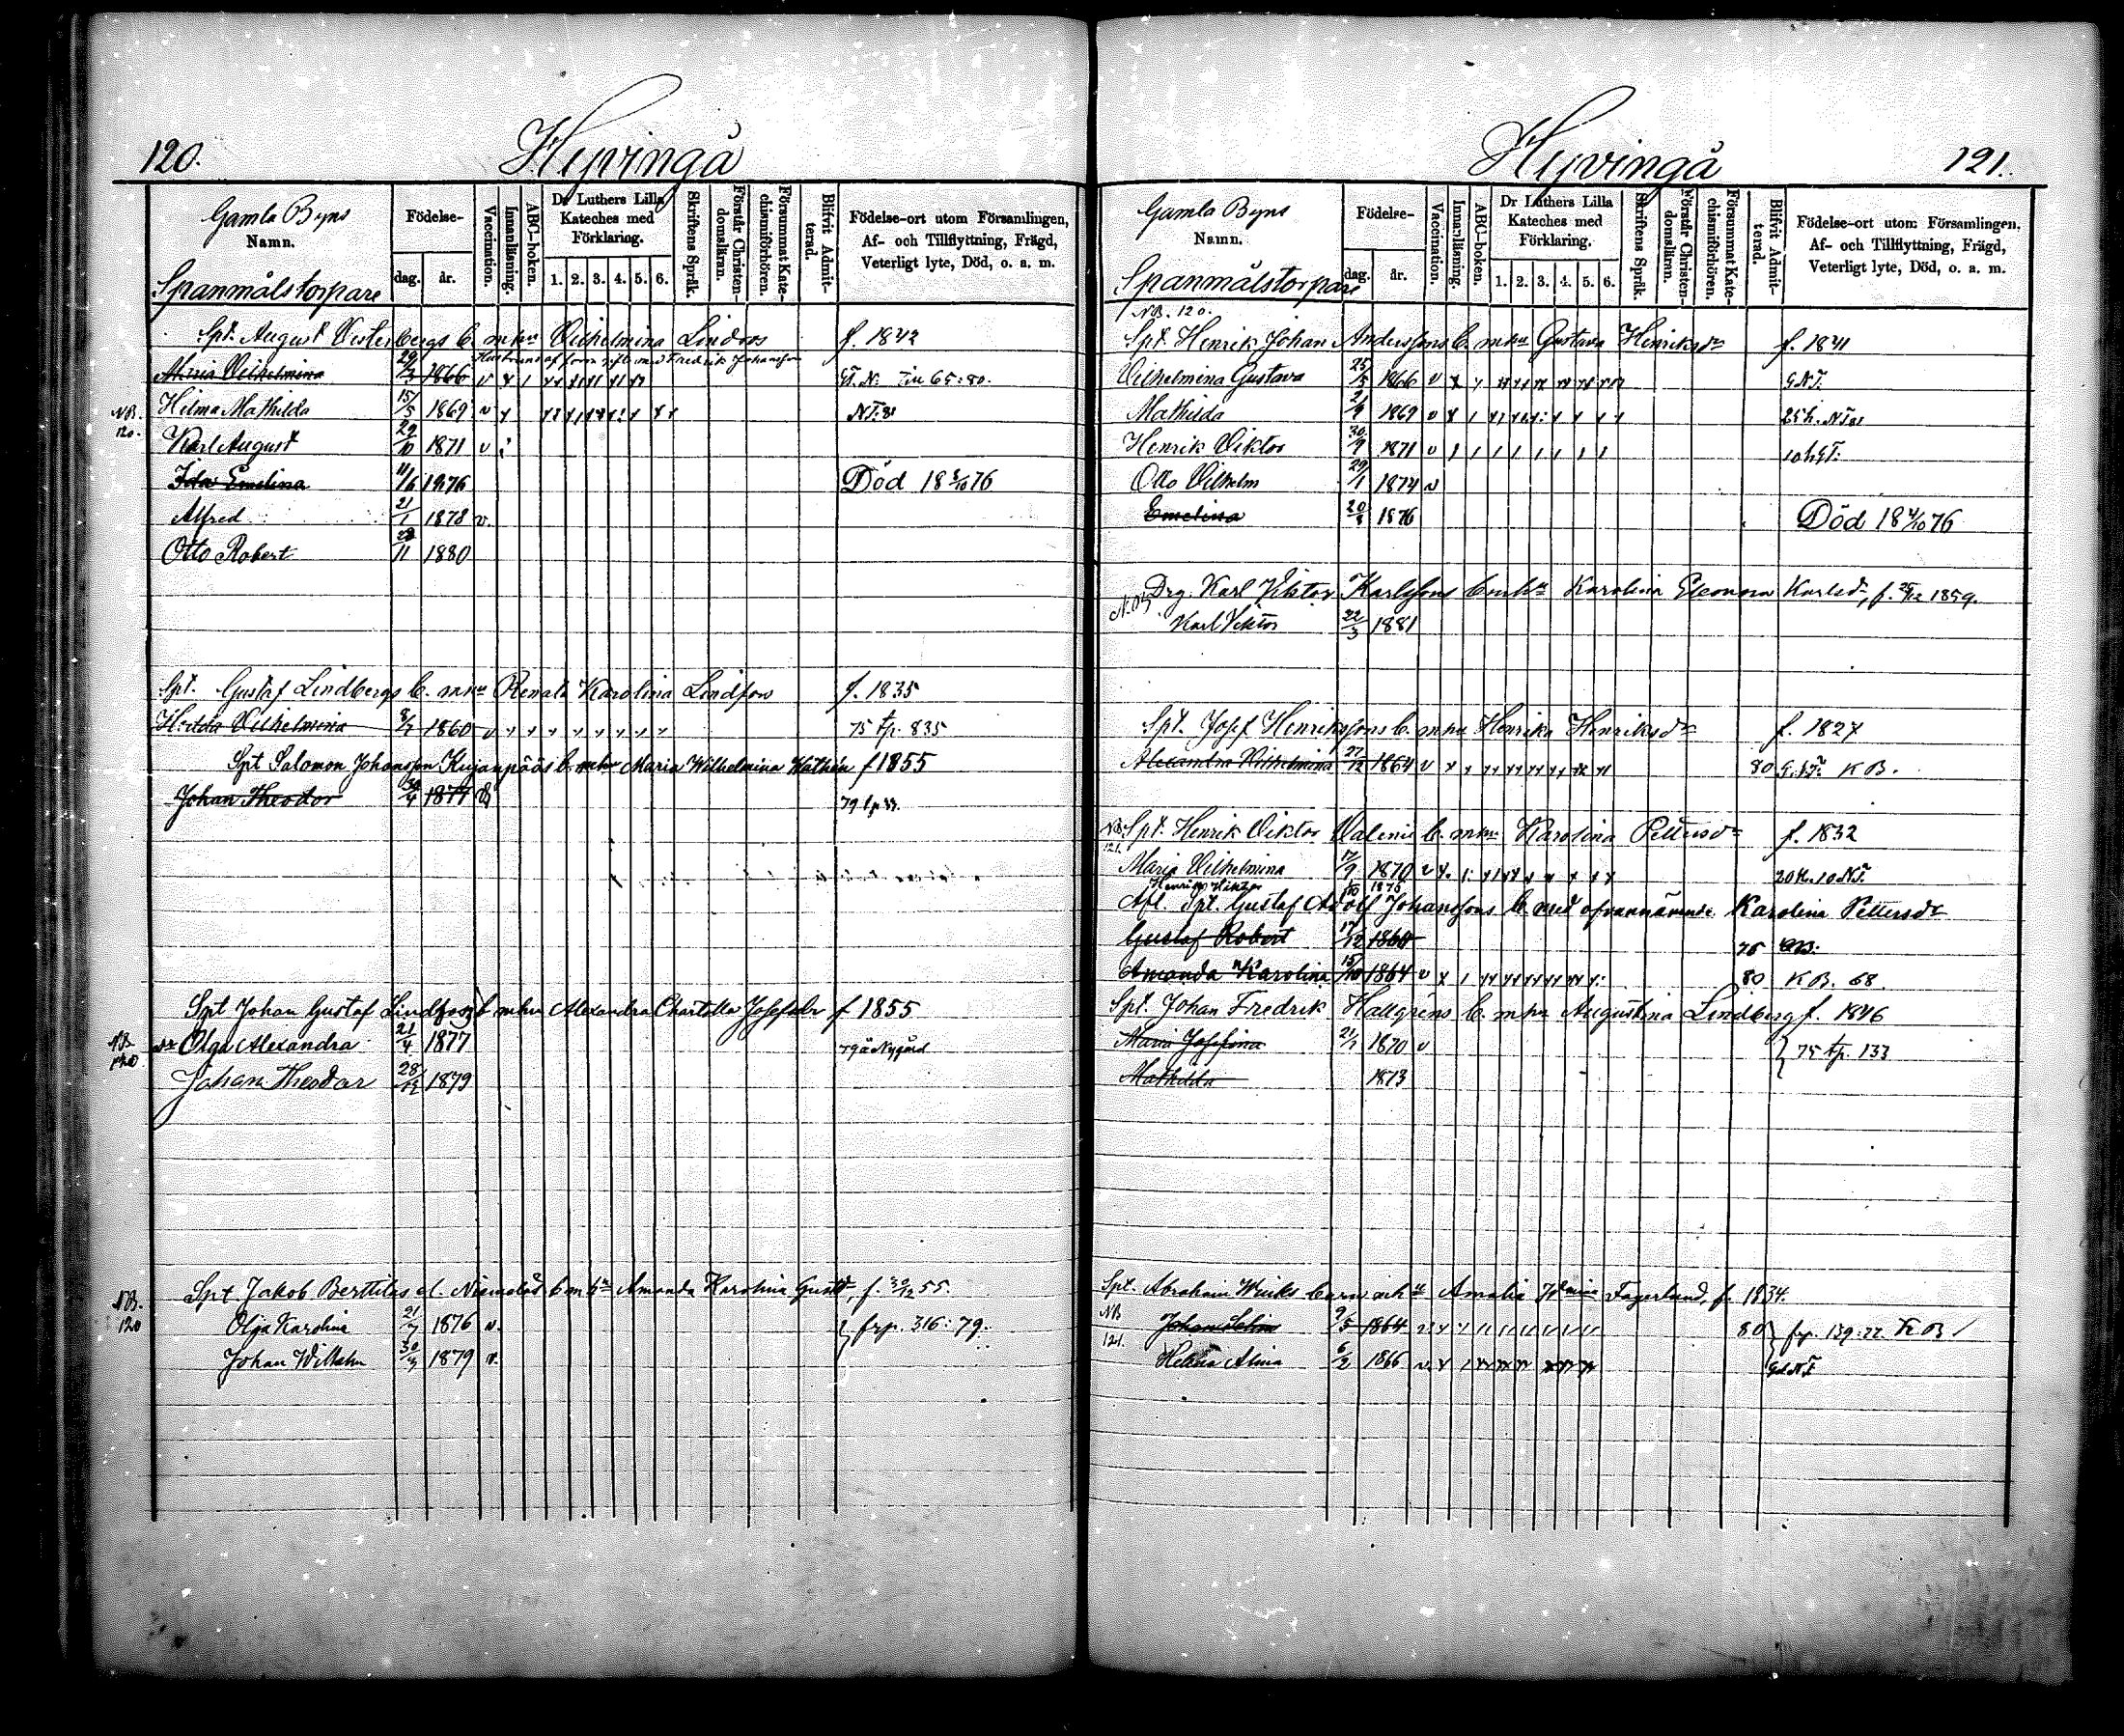 120.
Hyvingå
Gamla Byns
Namn.
Spanmålstorpare
Födelse-
dag. år.
Vaccination.
Innanläsning.
ABC-boken.
Dr Luthers Lilla
Kateches med
Förklaring.
1. 2. 3. 4. 5. 6.
Skriftens Språk.
Förstår Christen-
domsläran.
Försummat Kate-
chismiförhören.
Blifvit Admit-
terad.
Födelse-ort utom Församlingen,
Af- och Tillflyttning, Frägd,
Veterligt lyte, Död, o. a. m.
Spt. August Vesterbergs b. m hu Vilhelmina Lindroos f. 1842
Vilhelmina 29/3 1866 v
NB. 120. Hilma Mathilda 15/5 1869 v
Karl August 29/10 1871 v
Ida Emelina 11/6 1876 Död 18 5/10 76
Alfred 21/1 1878 v.
Otto Robert 28/11 1880
Spt. Gustaf Lindbergs b. m hu Renata Karolina Lindfors f. 1835
Vilhelmina 8/7 1860 v 75 fp. 835
Spt Salomon Johansson Kujanpääs b. m hu Maria Wilhelmina f 1855
Johan Theodor 30/4 1877
Spt Johan Gustaf Lindfors b m hu Alexandra Charlotta Josefsdr f 1855
NB 120 Olga Alexandra 21/4 1877 79 å Nygård
Johan Theodor 28/12 1879
Spt Jakob Berttilas el. Niemeläs b m hu Amanda Karolina f. 30/12 55.
NB. 120 Olga Karolina 21/7 1876 v. frp. 316: 79.
Johan Wilhelm 30/3 1879 v.
121.
Hyvingå
Gamla Byns
Namn.
Spanmålstorpare
Födelse-
dag. år.
Vaccination.
Innanläsning.
ABC-boken.
Dr Luthers Lilla
Kateches med
Förklaring.
1. 2. 3. 4. 5. 6.
Skriftens Språk.
Förstår Christen-
domsläran.
Försummat Kate-
chismiförhören.
Blifvit Admit-
terad.
Födelse-ort utom Församlingen,
Af- och Tillflyttning, Frägd,
Veterligt lyte, Död, o. a. m.
NB. 120.
Spt. Henrik Johan Anderssons b. m hu Gustava Henriksdr f. 1841
Vilhelmina Gustava 25/5 1866 v G.N.T.
Mathilda 21/9 1869 v
Henrik Viktor 30/9 1871 v
Otto Vilhelm 29/1 1874 v
Emelina 20/8 1876 Död 18 4/10 76
NB Drg. Karl Viktor Karlssons b m hu Karolina Eleonora Karlsdr, f. 25/12 1859.
Karl Viktor 22/3 1881
Spt. Josef Henrikssons b. m hu Henrika Henriksdr f. 1827
Alexandra Vilhelmina 27/12 1864 v 80 K B.
NB. 121. Spt. Henrik Viktor Valenii b. m hu Karolina Pettersdr f. 1832
Maria Vilhelmina 17/9 1870 v
Henrik Viktor 1876
Afl. Spt. Gustaf Adolf Johanssons b. med ofvannämnde Karolina Pettersdr
Gustaf Robert 17/12 1860 76
Amanda Karolina 15/10 1864 v 80 K B. 68.
Spt. Johan Fredrik Hallgréns b. m hu Augustina Lindberg f. 1846
Maria Josefina 21/7 1870 v 75 fp. 133
Mathilda 1873
Spt. Abraham Wiiks barn m hu Amalia Fagerlund, f. 1834.
NB 121. Johan Selim 9/5 1864 80 fp. 139: 77 K B
Alina 6/2 1866